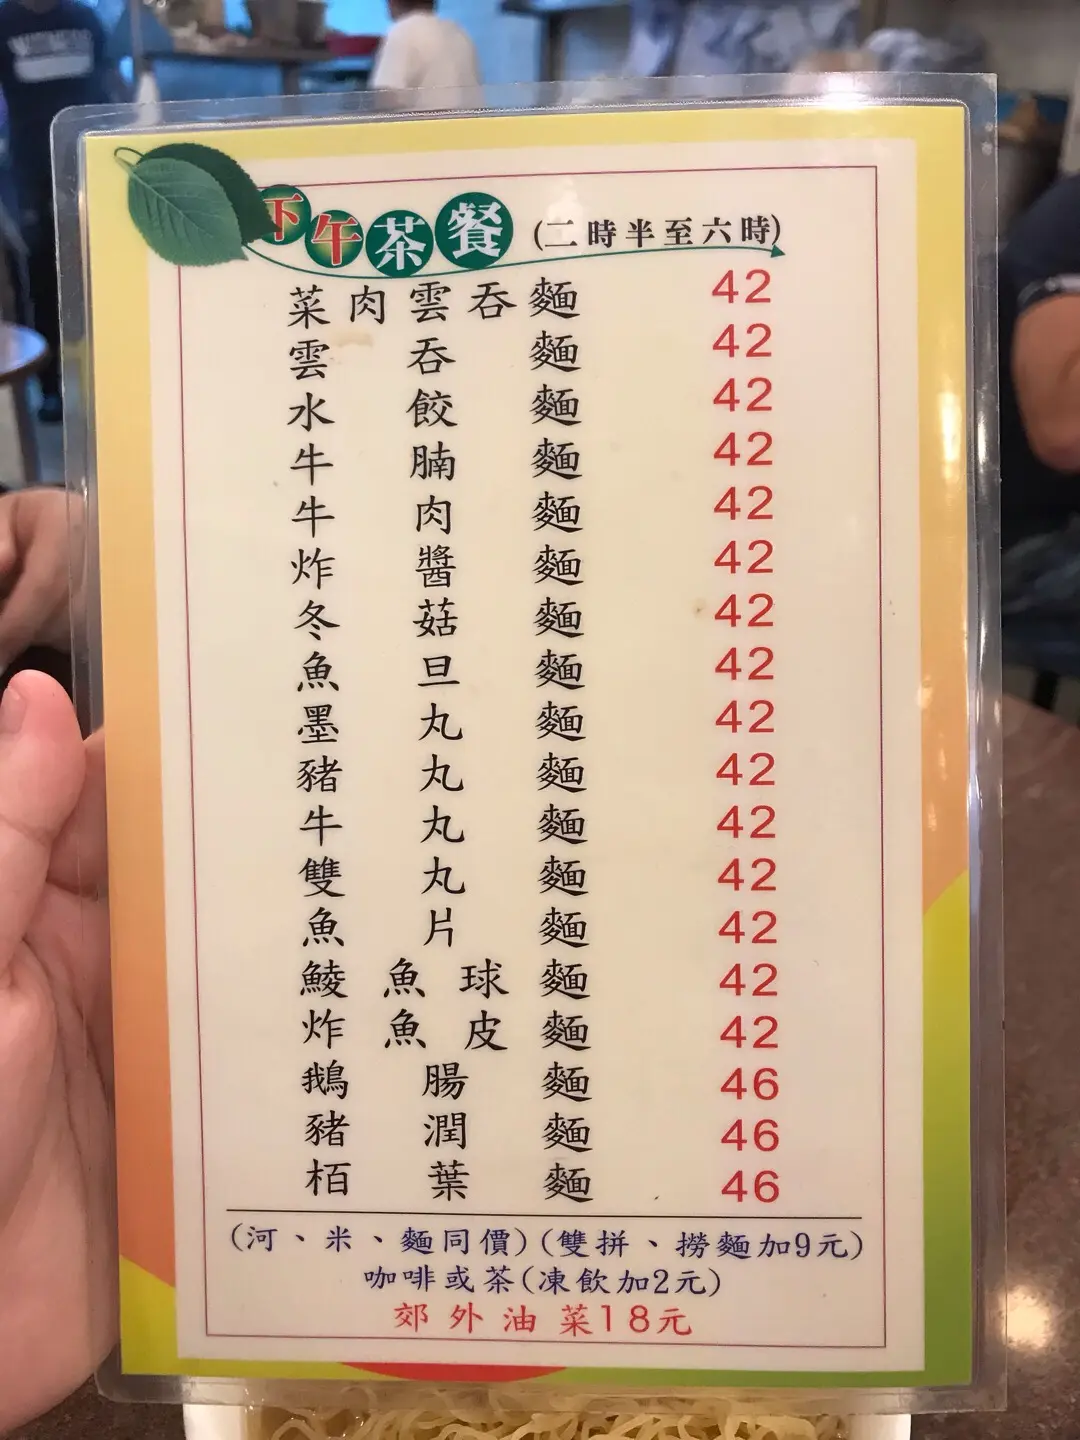 下午茶餐 (二時半至六時)
菜肉雲吞麵 42
雲吞麵 42
水餃麵 42
牛腩麵 42
牛肉麵 42
炸醬麵 42
冬菇麵 42
魚旦麵 42
墨丸麵 42
豬丸麵 42
牛丸麵 42
雙丸麵 42
魚片麵 42
鯪魚球麵 42
炸魚皮麵 42
鵝腸麵 46
豬潤麵 46
栢葉麵 46
(河、米、麵同價)(雙拼、撈麵加9元)
咖啡或茶(凍飲加2元)
郊外油菜18元